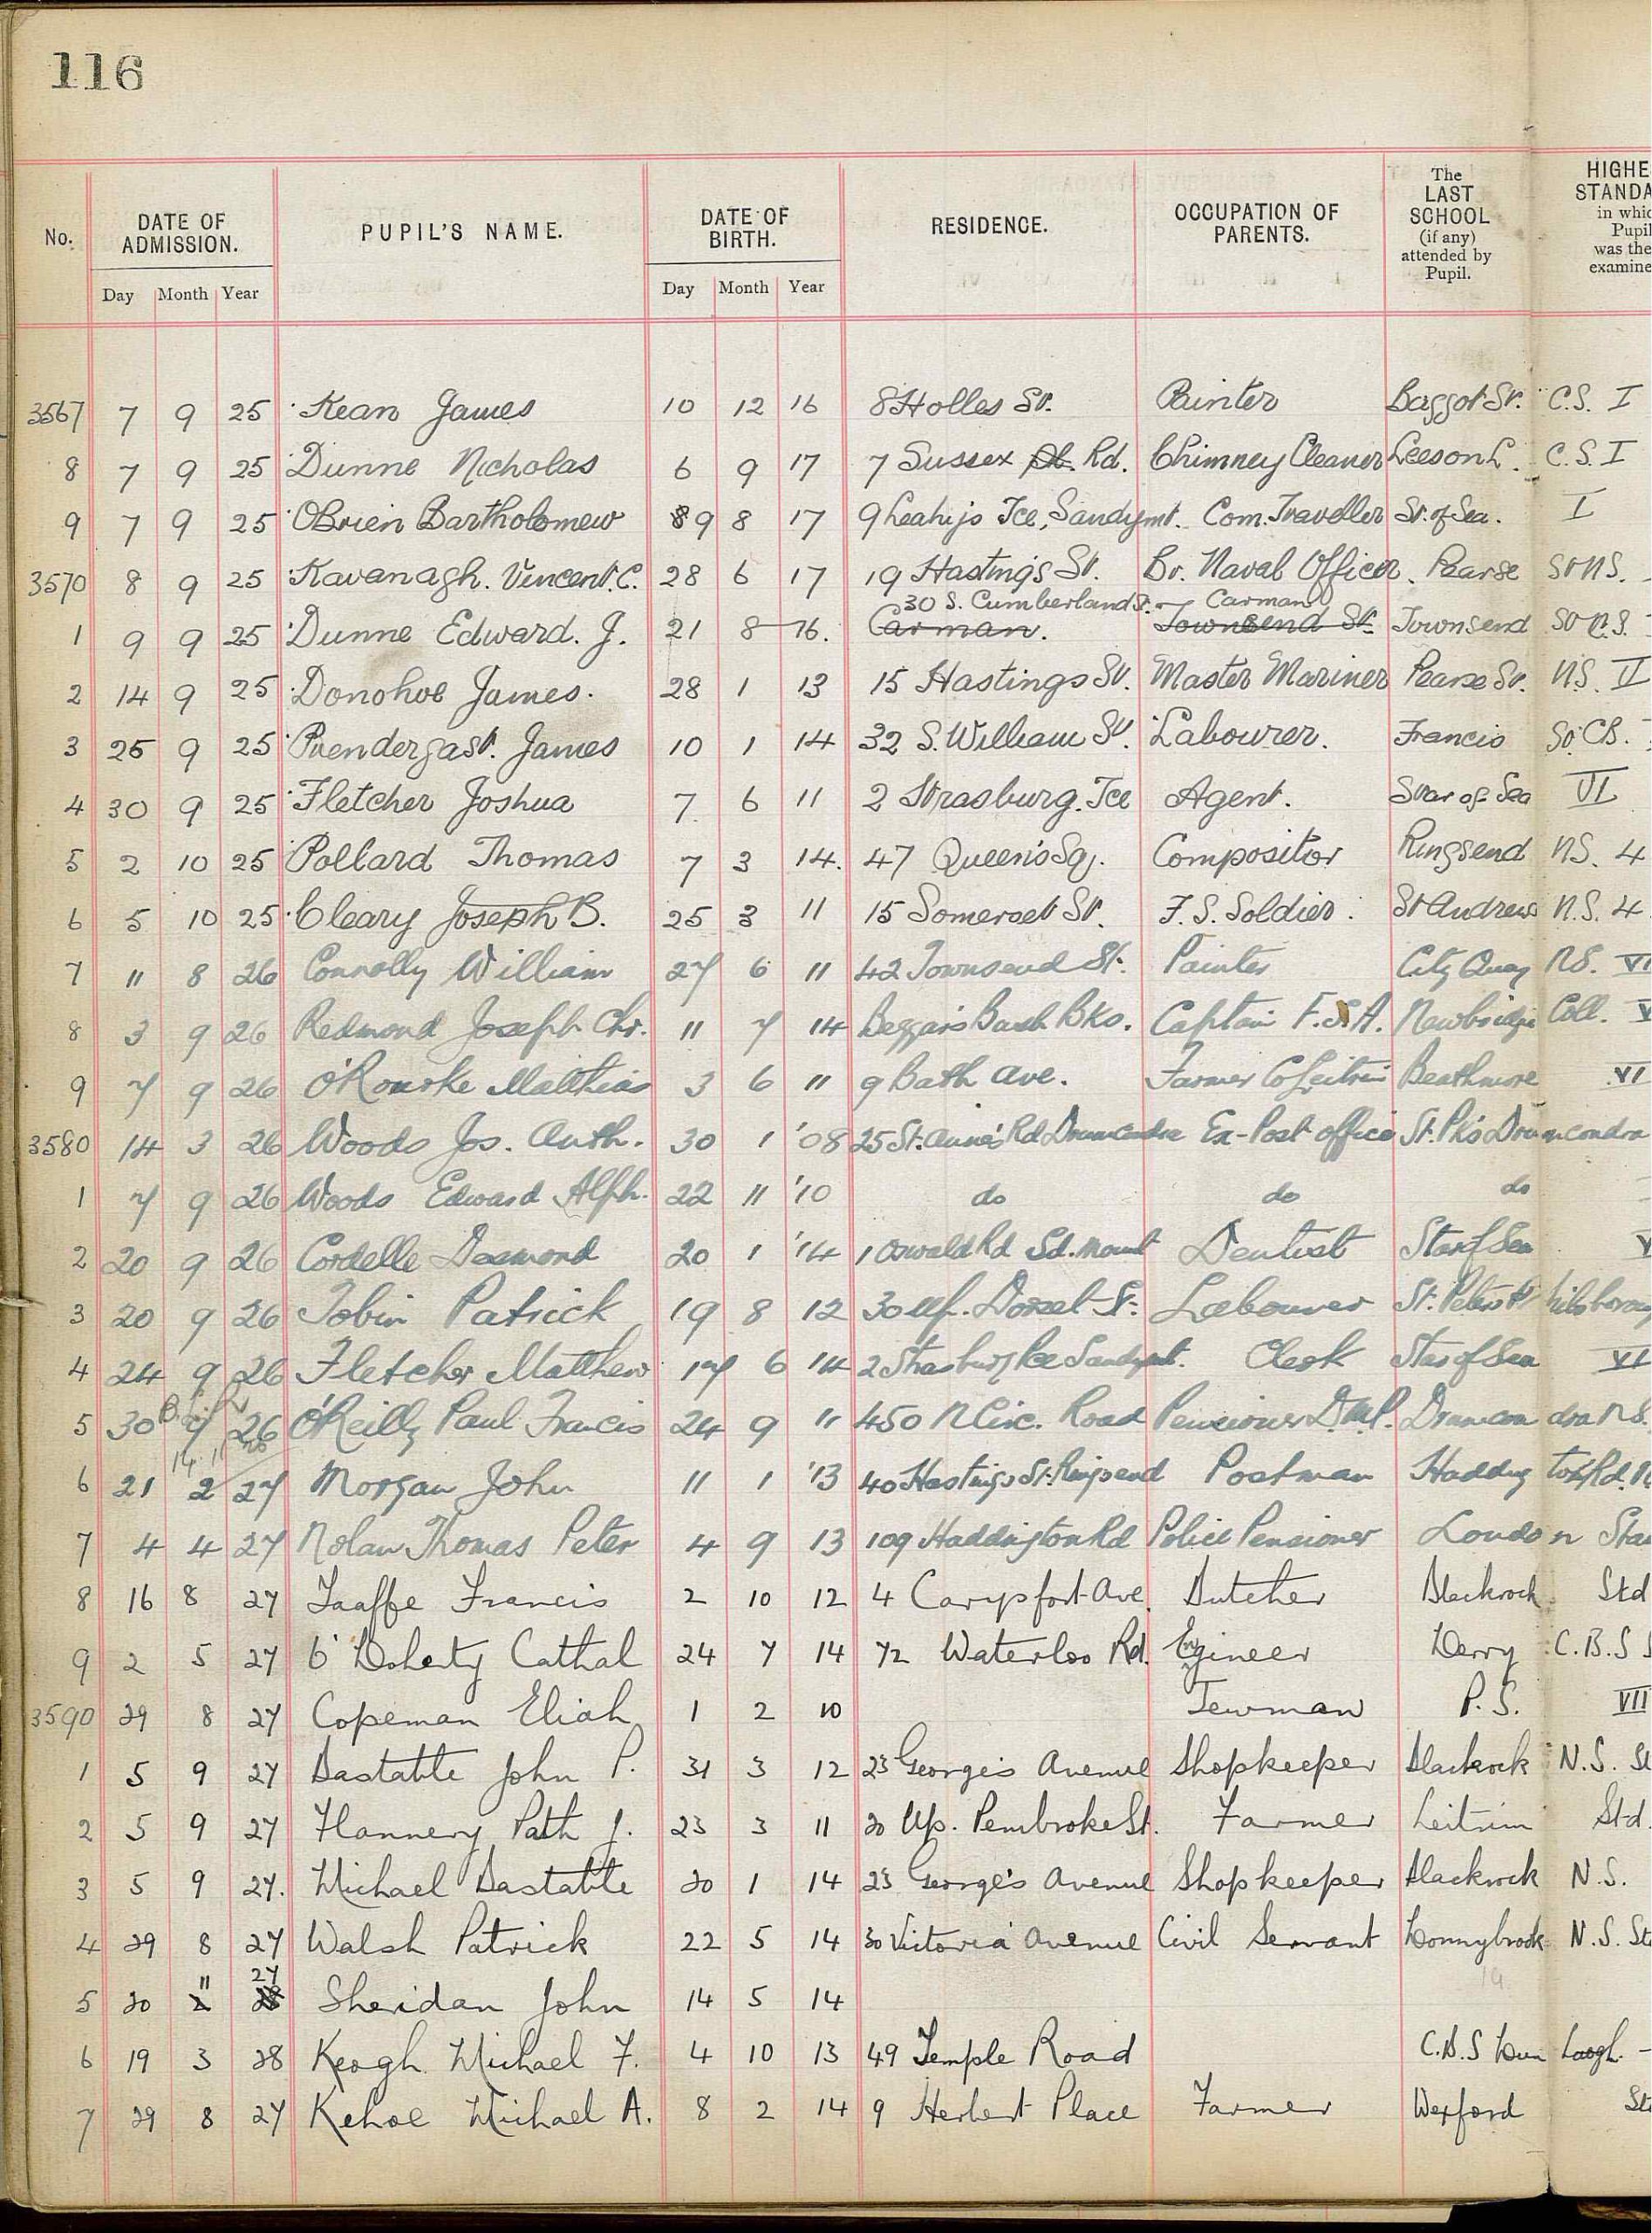 116
No. DATE OF ADMISSION. PUPIL'S NAME. DATE OF BIRTH. RESIDENCE. OCCUPATION OF PARENTS. The LAST SCHOOL (if any) attended by Pupil. HIGHE STANDA in whic Pupil was the examine
Day Month Year Day Month Year
3567 7 9 25 Kean James 10 12 16 8 Holles St. Painter Baggot St. C.S. I
8 7 9 25 Dunne Nicholas 6 9 17 7 Sussex Pl. Rd. Chimney Cleaner Leeson L. C.S. I
9 7 9 25 OBrien Bartholomew 8 9 8 17 9 Leahy's Tce, Sandymt. Com. Traveller Sr. of Sea. I
3570 8 9 25 Kavanagh. Vincent. C. 28 6 17 19 Hastings St. Br. Naval Officer. Pearse St NS.
30 S. Cumberland St. Carman
1 9 9 25 Dunne Edward. J. 21 8 16. Carman. Townsend St. Townsend St N.S.
2 14 9 25 Donohoe James. 28 1 13 15 Hastings St. Master Mariner Pearse St. N.S. V
3 25 9 25 Prendergast. James 10 1 14 32 S. William St. Labourer. Francis St. CB.
4 30 9 25 Fletcher Joshua 7 6 11 2 Strasburg. Tce Agent. Star of Sea VI
5 2 10 25 Pollard Thomas 7 3 14. 47 Queen's Sq. Compositor Ringsend NS. 4
6 5 10 25 Cleary Joseph B. 25 3 11 15 Somerset St. F. S. Soldier. St Andrews N.S. 4
7 11 8 26 Connolly William 27 6 11 42 Townsend St. Painter City Quay NS. VI
8 3 9 26 Redmond Joseph Chr. 11 7 14 Beggars Bush Bks. Captain F.S.A. Newbridge Coll. V
9 7 9 26 O'Rourke Matthias 3 6 11 9 Bath Ave. Farmer Co Leitrim VI
3580 14 3 26 Woods Jos. Anth. 30 1 '08 25 St. Anne's Rd Drumcondra Ex-Post office St. Pk's Drumcondra
1 7 9 26 Woods Edward Alph. 22 11 '10 do do do
2 20 9 26 Cordelle Desmond 20 1 '14 1 Oswald Rd Sd. mount Dentist Star of Sea V
3 20 9 26 Tobin Patrick 19 8 12 30 Up. Dorset St. Labourer St. Peter's Phibsborou
4 24 9 26 Fletcher Matthew 17 6 14 2 Strasburg Tce Sandymt. Clerk Star of Sea VI
5 30 9 26 O'Reilly Paul Francis 24 9 11 450 N Circ. Road Pensioner D.M.P. Drumcondra N.S.
6 21 2 27 Morgan John 11 1 '13 40 Hastings St. Ringsend Postman Haddington Rd. N
7 4 4 27 Nolan Thomas Peter 4 9 13 109 Haddington Rd Police Pensioner London Sta
8 16 8 27 Taaffe Francis 2 10 12 4 Carysfort Ave. Butcher Blackrock Std
9 2 5 27 O'Doherty Cathal 24 7 14 72 Waterloo Rd. Engineer Derry C.B.S S
3590 29 8 27 Copeman Eliah 1 2 10 Jewman P.S. VII
1 5 9 27 Bastable John P. 31 3 12 23 George's Avenue Shopkeeper Blackrock N.S. St
2 5 9 27 Flannery Patk J. 23 3 11 20 Up. Pembroke St. Farmer Leitrim Std.
3 5 9 27. Michael Bastable 20 1 14 23 George's Avenue Shopkeeper Blackrock N.S.
4 29 8 27 Walsh Patrick 22 5 14 30 Victoria Avenue Civil Servant Donnybrook N.S. St
11 27
5 20 2 28 Sheridan John 14 5 14
6 19 3 28 Keogh Michael F. 4 10 13 49 Temple Road C.B.S Dun Laogh.
7 29 8 27 Kehoe Michael A. 8 2 14 9 Herbert Place Farmer Wexford St